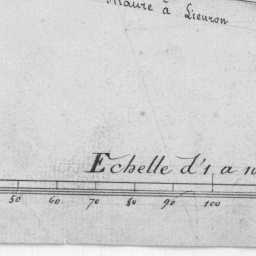 Maure à Lieuron
Echelle d'1 a 10
50 60 70 80 90 100